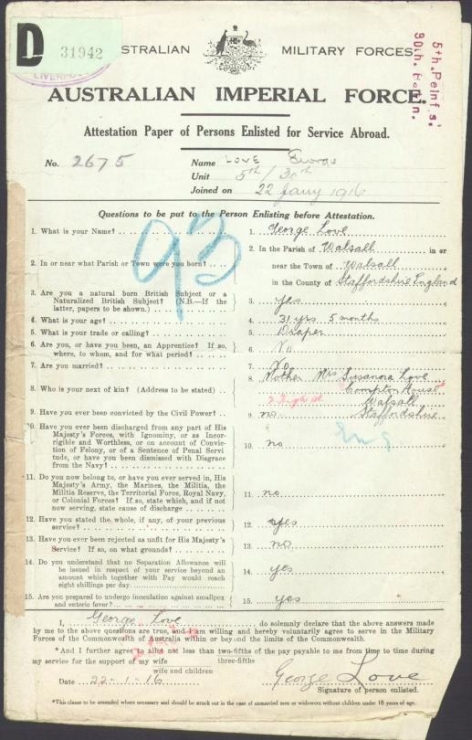 D 31942
LIVERPO
AUSTRALIAN MILITARY FORCES.
5th. Reinf's:
30th. Battn.
AUSTRALIAN IMPERIAL FORCE.
Attestation Paper of Persons Enlisted for Service Abroad.
No. 2675 Name LOVE George
Unit 5th / 30th
Joined on 22 Jany 1916
Questions to be put to the Person Enlisting before Attestation.
93
1. What is your Name? 1. George Love
2. In or near what Parish or Town were you born? 2. In the Parish of Walsall in or
near the Town of Walsall
in the County of Staffordshire England
3. Are you a natural born British Subject or a
Naturalized British Subject? N.B.—If the
latter, papers to be shown.) 3. yes
4. What is your age? 4. 31 yrs. 5 months
5. What is your trade or calling? 5. Draper
6. Are you, or have you been, an Apprentice? If so,
where, to whom, and for what period? 6. No
7. Are you married? 7. No
8. Who is your next of kin? (Address to be stated) 8. Mother Mrs Susanna Love
Compton House
Walsall
Staffordshire
Eng
9. Have you ever been convicted by the Civil Power? 9. no
10. Have you ever been discharged from any part of His
Majesty's Forces, with Ignominy, or as Incor-
rigible and Worthless, or on account of Convic-
tion of Felony, or of a Sentence of Penal Servi-
tude, or have you been dismissed with Disgrace
from the Navy? 10. no
11. Do you now belong to, or have you ever served in, His
Majesty's Army, the Marines, the Militia, the
Militia Reserve, the Territorial Force, Royal Navy,
or Colonial Forces? If so, state which, and if not
now serving, state cause of discharge 11. no
12. Have you stated the whole, if any, of your previous
service? 12. yes
13. Have you ever been rejected as unfit for His Majesty's
Service? If so, on what grounds? 13. no
14. Do you understand that no Separation Allowance will
be issued in respect of your service beyond an
amount which together with Pay would reach
eight shillings per day 14. yes
15. Are you prepared to undergo inoculation against smallpox
and enteric fever? 15. yes
I, George Love do solemnly declare that the above answers made
by me to the above questions are true, and I am willing and hereby voluntarily agree to serve in the Military
Forces of the Commonwealth of Australia within or beyond the limits of the Commonwealth.
*And I further agree to allot not less than two-fifths of the pay payable to me from time to time during
three-fifths
my service for the support of my wife
wife and children
Date 22-1-16 George Love
Signature of person enlisted.
*This clause to be amended where necessary and should be struck out in the case of unmarried men or widowers without children under 18 years of age.